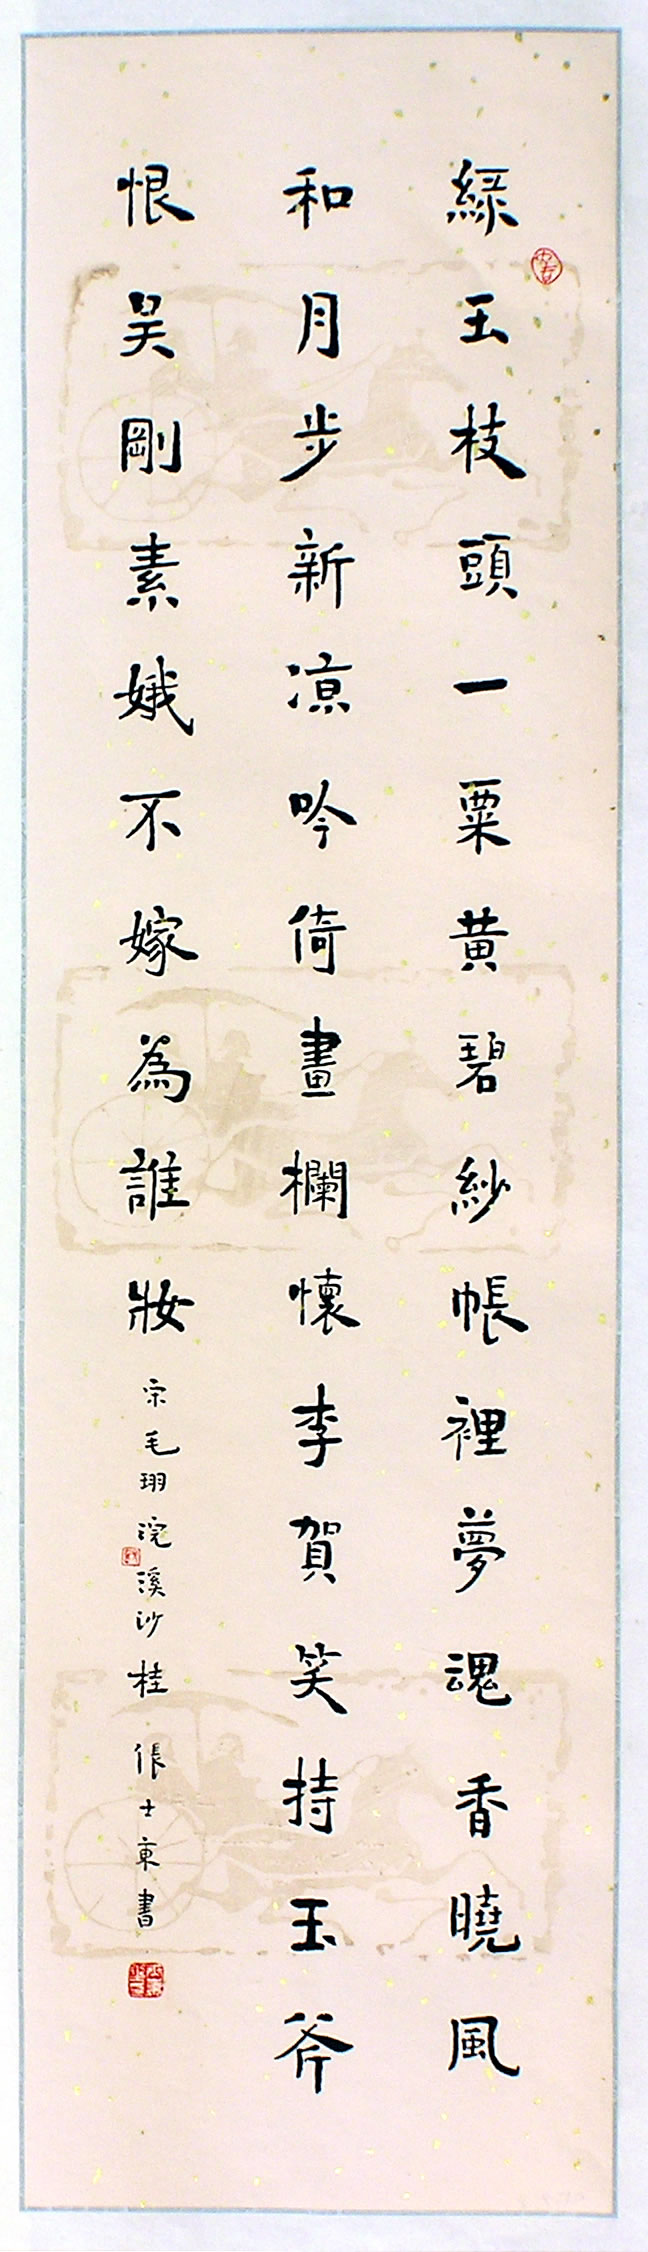 綠玉枝頭一粟黃碧紗帳裡夢魂香曉風
和月步新涼吟倚畫欄懷李賀笑持玉斧
恨吳剛素娥不嫁為誰妝
宋毛珝浣溪沙桂 張士東書